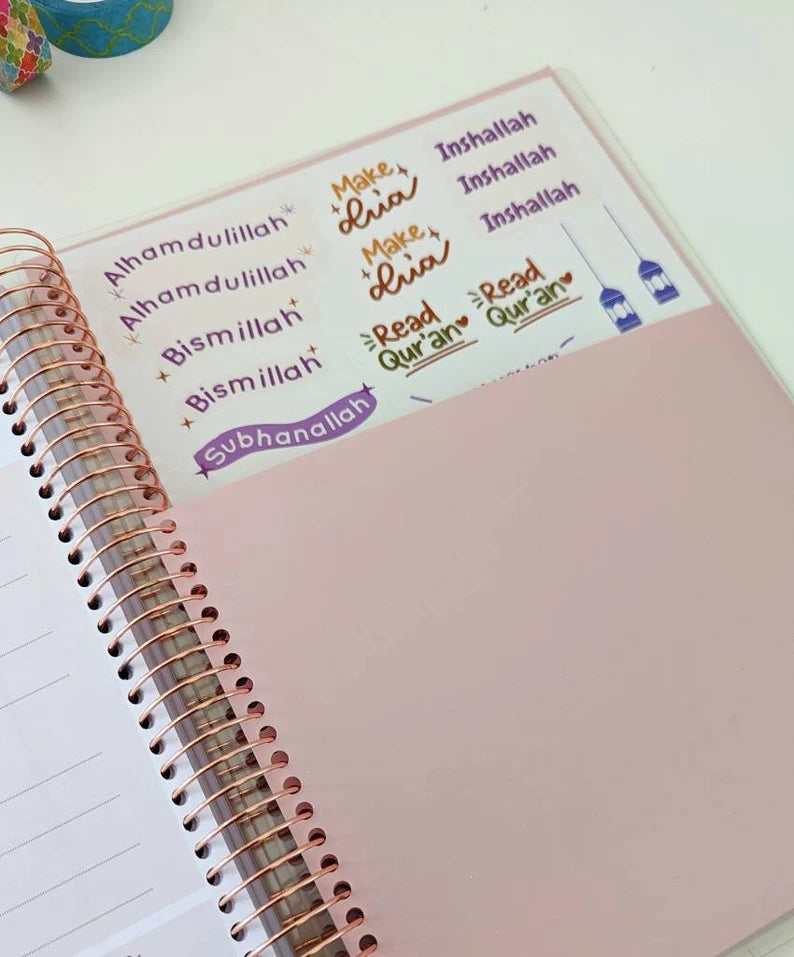 Alhamdulillah
Alhamdulillah
Bismillah
Bismillah
Subhanallah
Make
dua
Make
dua
Read
Qur'an
Read
Qur'an
Inshallah
Inshallah
Inshallah